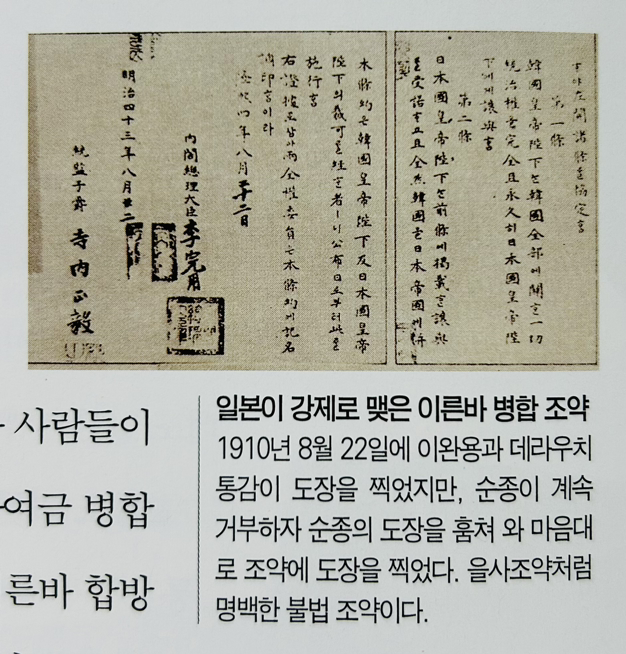 ᄒᆞ야左開諸條를協定홈
第一條
韓國皇帝陛下는韓國全部에關ᄒᆞᆫ一切
統治權을完全且永久히日本國皇帝陛
下에게讓與홈
第二條
日本國皇帝陛下는前條에揭載ᄒᆞᆫ讓與
를受諾ᄒᆞ고且全然韓國을日本帝國에併
本條約은韓國皇帝陛下及日本國皇帝
陛下의裁可를經ᄒᆞᆫ者ㅣ니公布日로부터此를
施行홈
右證據로삼아兩全權委員은本條約에記名
調印홈이라
隆熙四年八月二十二日
內閣總理大臣 李完用
明治四十三年八月廿二
統監子爵 寺內正毅
사람들이
여금 병합
른바 합방
일본이 강제로 맺은 이른바 병합 조약
1910년 8월 22일에 이완용과 데라우치
통감이 도장을 찍었지만, 순종이 계속
거부하자 순종의 도장을 훔쳐 와 마음대
로 조약에 도장을 찍었다. 을사조약처럼
명백한 불법 조약이다.